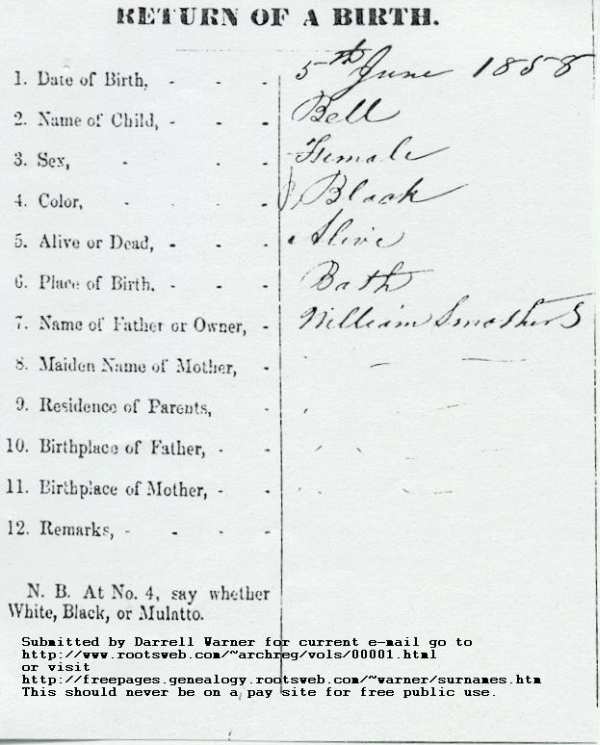 RETURN OF A BIRTH.
1. Date of Birth, - - - 5th June 1858
2. Name of Child, - - - Bell
3. Sex, - - - Female
4. Color, - - - - Black
5. Alive or Dead, - - - Alive
6. Place of Birth. - - - Bath
7. Name of Father or Owner, - William Smathers
8. Maiden Name of Mother, -
9. Residence of Parents, -
10. Birthplace of Father, - -
11. Birthplace of Mother, - -
12. Remarks, - - - -
N. B. At No. 4, say whether
White, Black, or Mulatto.
Submitted by Darrell Warner for current e-mail go to
http://www.rootsweb.com/~archreg/vols/00001.html
or visit
http://freepages.genealogy.rootsweb.com/~warner/surnames.htm
This should never be on a pay site for free public use.